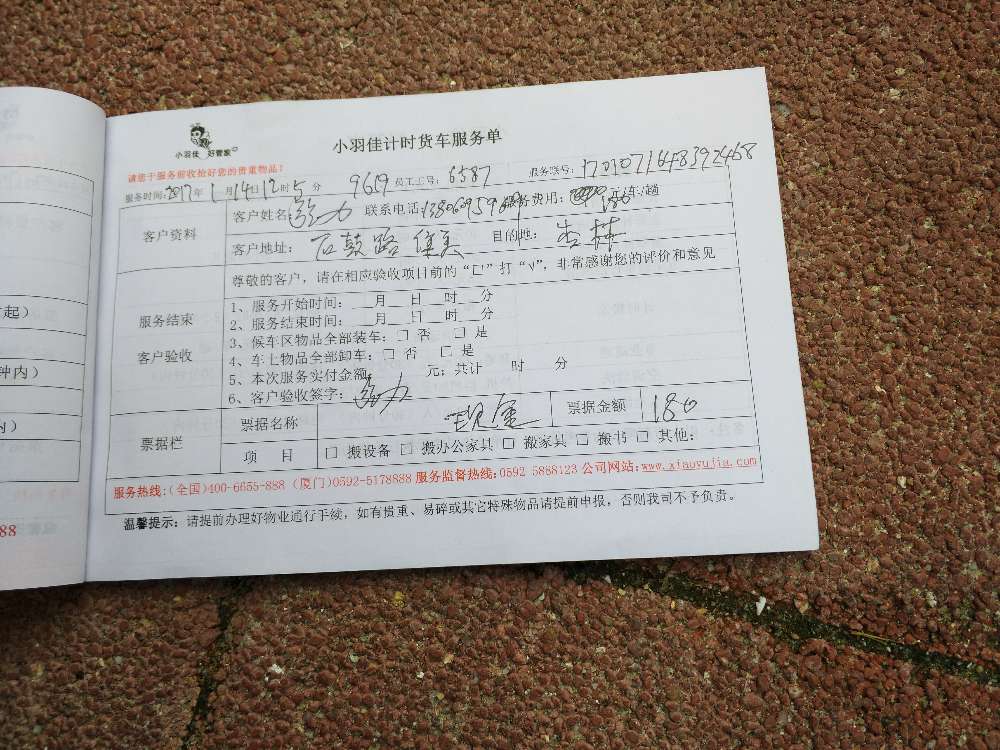 小羽佳 好管家
小羽佳计时货车服务单
请您于服务前收检好您的贵重物品!
服务时间:2017年1月14日12时5分 9619 员工工号: 6587 服务联号:
客户资料 客户姓名: 联系电话: 服务费用: 180元/趟
客户地址: 石鼓路 集美 目的地: 杏林
尊敬的客户，请在相应验收项目前的“□”打“√”，非常感谢您的评价和意见
服务结束
客户验收
1、服务开始时间: 月 日 时 分
2、服务结束时间: 月 日 时 分
3、候车区物品全部装车: □ 否 □ 是
4、车上物品全部卸车: □ 否 □ 是
5、本次服务实付金额: 元; 共计 时 分
6、客户验收签字:
票据栏 票据名称 现金 票据金额 180
项 目 □ 搬设备 □ 搬办公家具 □ 搬家具 □ 搬书 □ 其他:
服务热线:(全国)400-6655-888 (厦门)0592-5178888 服务监督热线:0592 5888123 公司网站:www.xiaoyujia.com
温馨提示: 请提前办理好物业通行手续，如有贵重、易碎或其它特殊物品请提前申报，否则我司不予负责。
起)
钟内)
内)
88